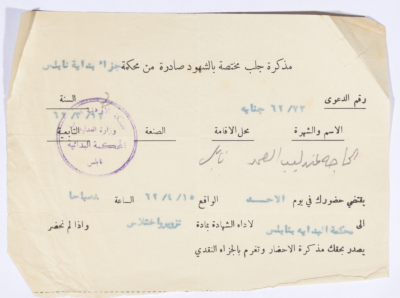 مذكرة جلب مختصة بالشهود صادرة من محكمة جزاء بداية نابلس
رقم الدعوى ٦٢/٢٣ جناية السنة
الاسم والشهرة محل الاقامة الصنعة التابعية
وزارة العدلية
المحكمة البدائية
نابلس
الحاجه عندليب العمد نابلس
يقتضي حضورك في يوم الاحد الواقع ٦٢/٤/١٥ الساعة صباحا
الى محكمة البداية بنابلس لاداء الشهادة بمادة تزوير واختلاس واذا لم تحضر
يصدر بحقك مذكرة الاحضار وتغرم بالجزاء النقدي